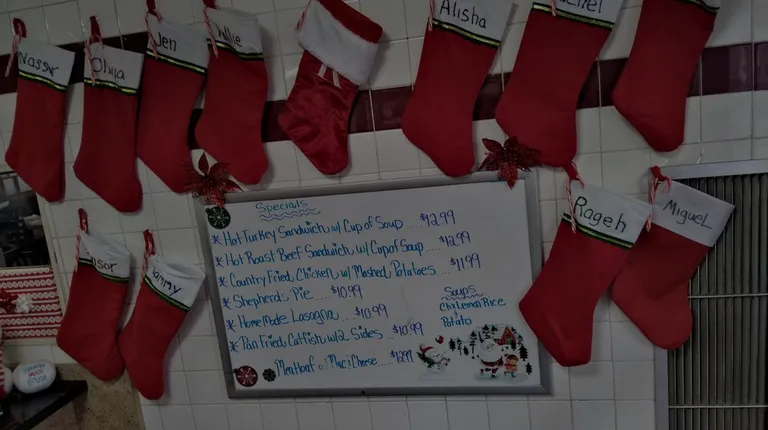 Nassor
Olivia
Jen
Alisha
Rageh
Miguel
Specials
* Hot Turkey Sandwich w/ Cup of Soup $12.99
* Hot Roast Beef Sandwich w/ Cup of Soup .... $12.99
* Country Fried Chicken w/ Mashed Potatoes ... $11.99
* Shepherds Pie .... $10.99
* HomeMade Lasagna .... $10.99
* Pan Fried Catfish w/ 2 Sides .... $10.99
Meatloaf Mac & Cheese ..... $12.99
Soups
Chix Lemon Rice
&
Potato